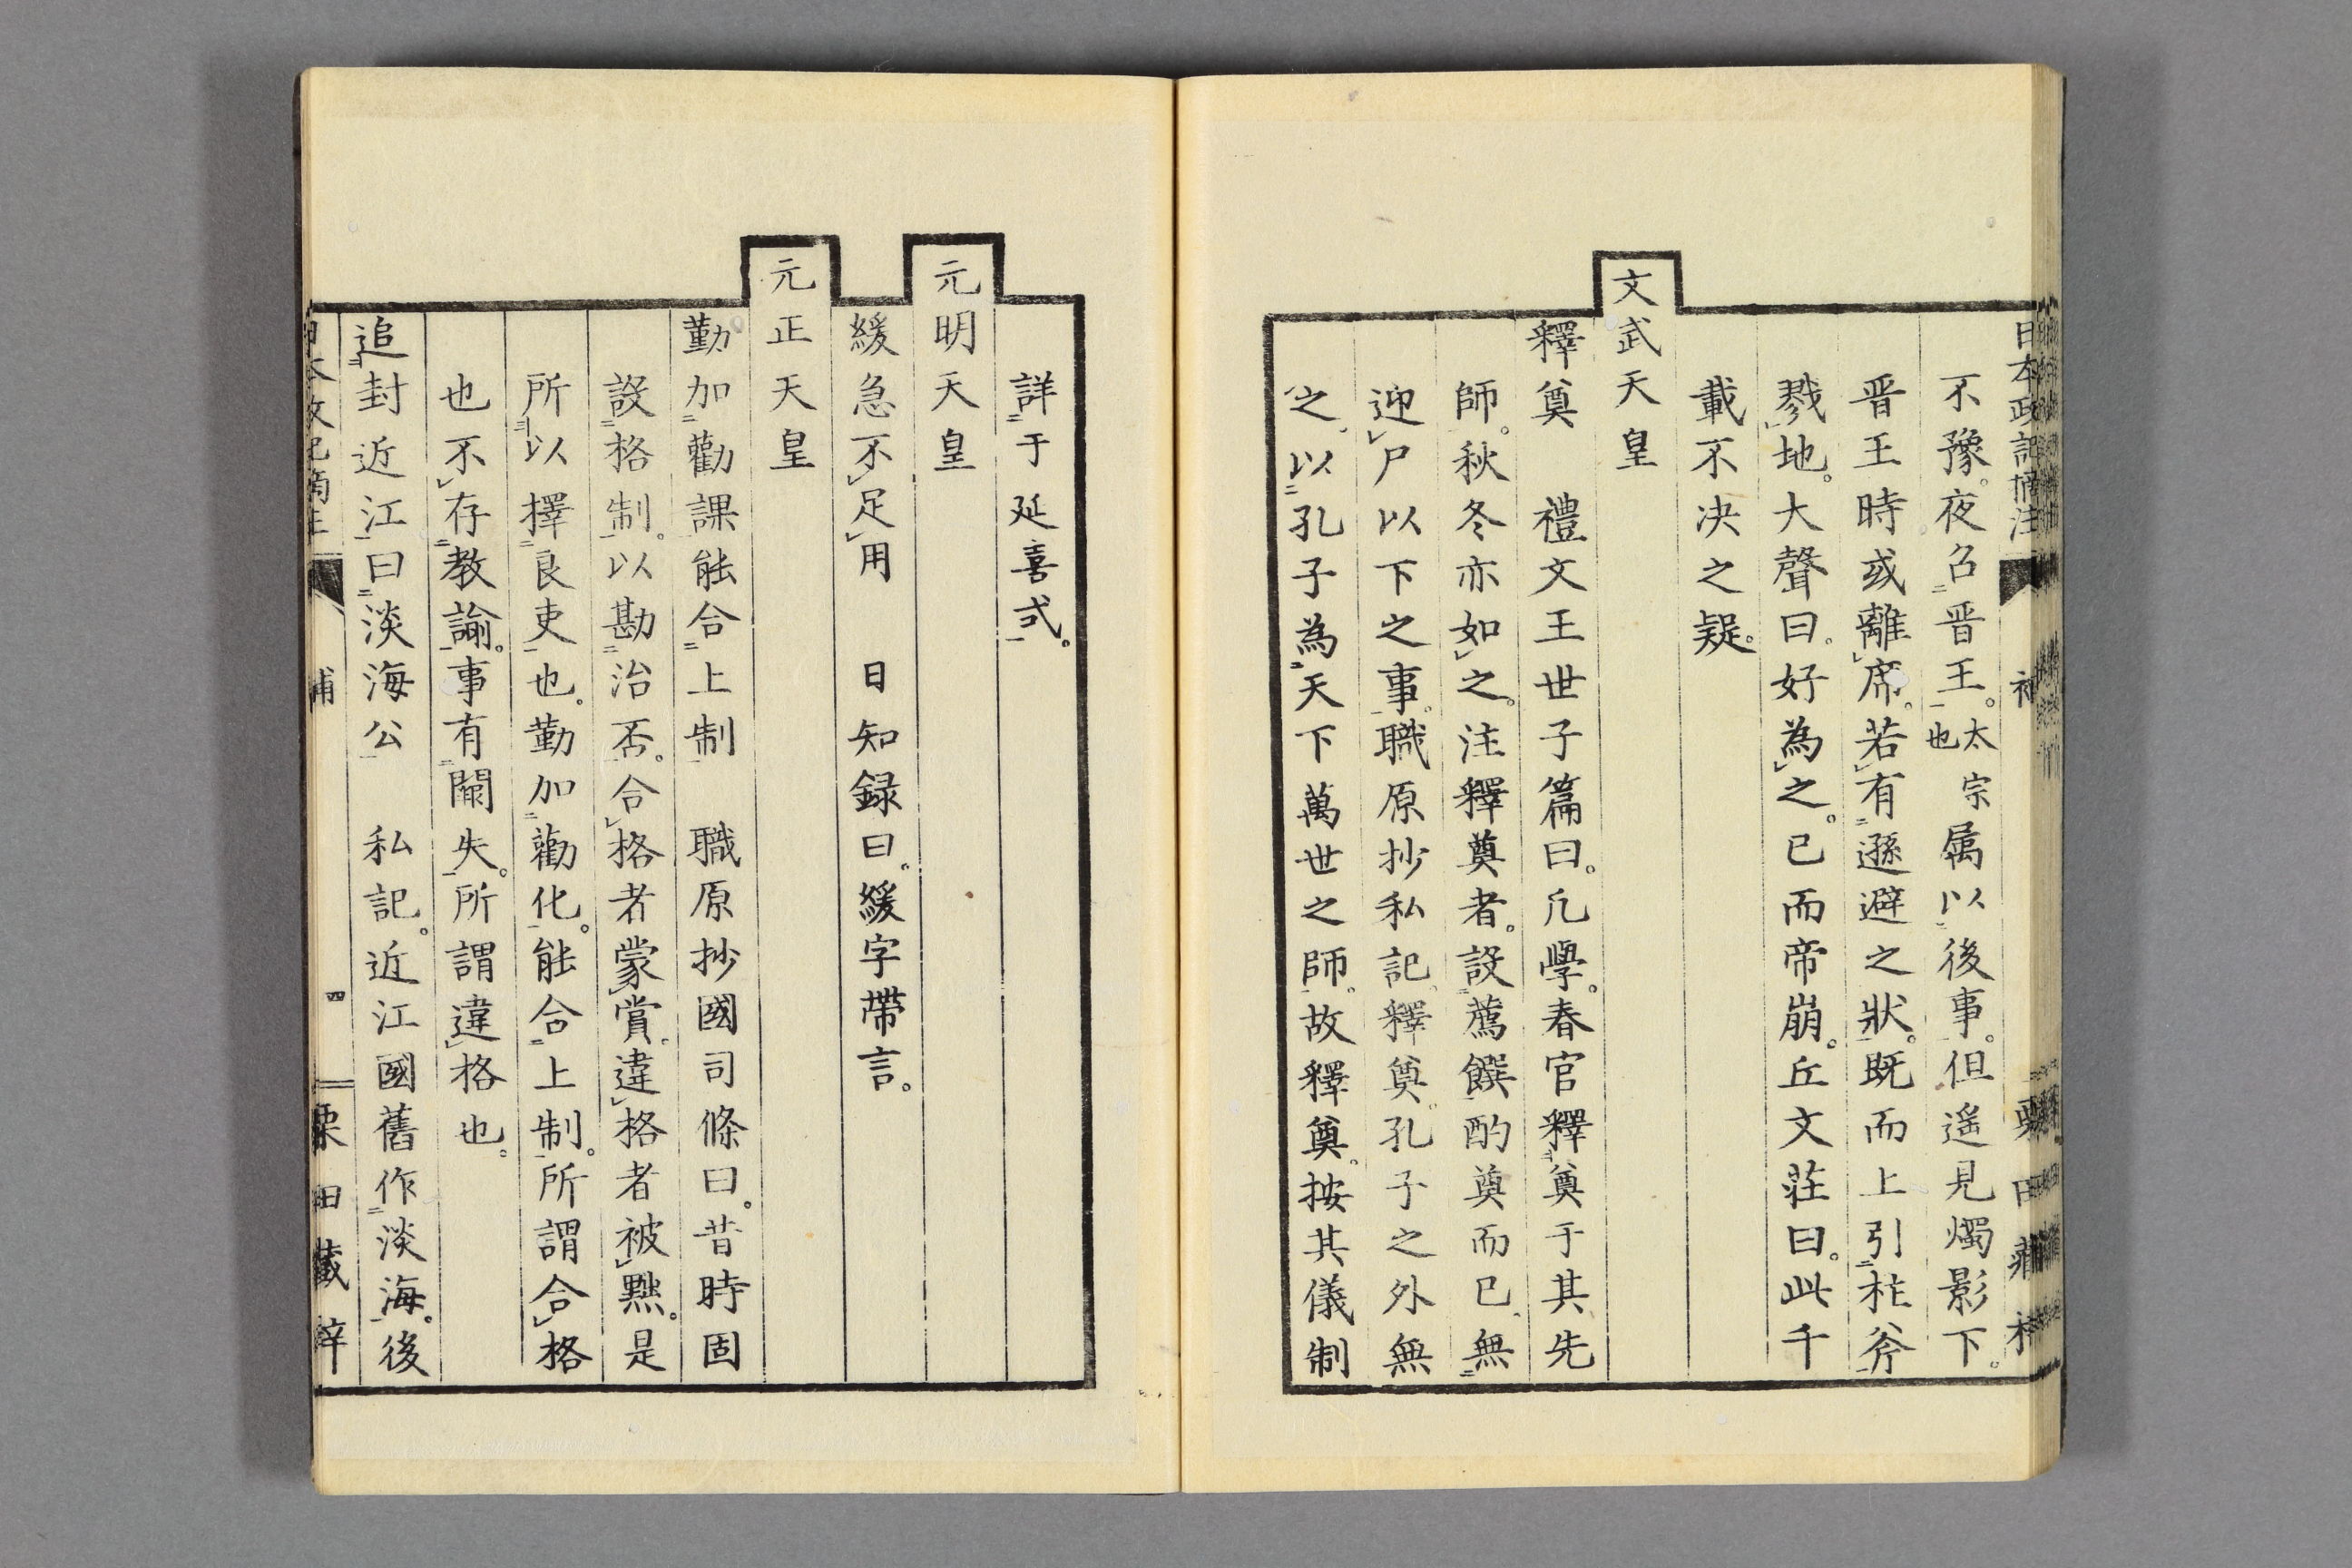 日本政記補注
不豫。夜召晋王。太宗也屬以後事。但遙見燭影下。
晋王時或離席。若有遜避之狀。既而上引柱斧
戮地。大聲曰。好為之。已而帝崩。丘文莊曰。此千
載不決之疑。
文武天皇
釋奠　禮文王世子篇曰。凡學。春官釋奠于其先
師。秋冬亦如之。注釋奠者。設薦饌酌奠而已。無
迎尸以下之事。職原抄私記。釋奠。孔子之外無
之。以孔子為天下萬世之師。故釋奠。按其儀制
詳于延喜式。
元明天皇
緩急不足用　日知録曰。緩字帶言。
元正天皇
勤加勸課能合上制　職原抄國司條曰。昔時固
設格制。以勘治否。合格者蒙賞。違格者被黜。是
所以擇良吏也。勤加勸化。能合上制。所謂合格
也不存教諭。事有闕失。所謂違格也。
追封近江曰淡海公　私記。近江國舊作淡海。後
補　四